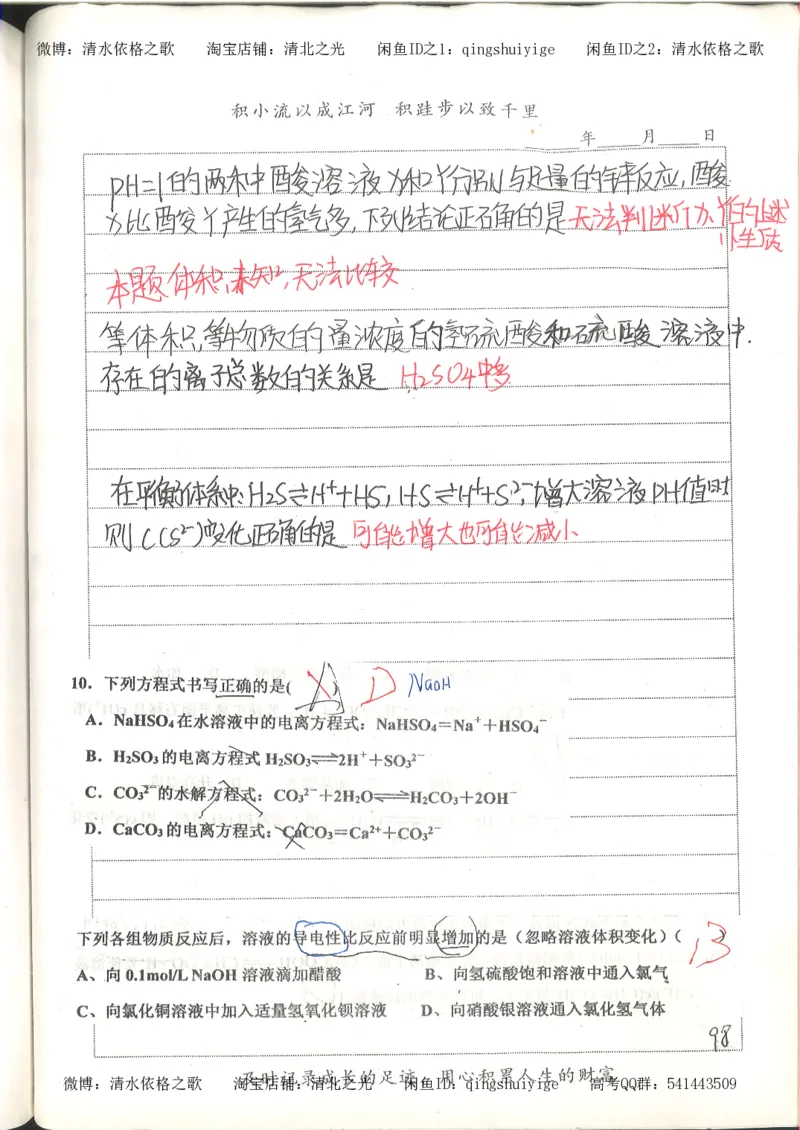 微博：清水依格之歌 淘宝店铺：清北之光 闲鱼ID之1：qingshuiyige 闲鱼ID之2：清水依格之歌
积小流以成江河 积跬步以致千里
年 月 日
PH=1的两种酸溶液X和Y分别与足量的锌反应,酸
X比酸Y产生的氢气多,下列结论正确的是 无法判断X、Y的
本题体积未知,无法比较
等体积,等物质的量浓度的氢硫酸和硫酸溶液中.
存在的离子总数的关系是 H2SO4中多
在平衡体系中:H2S⇌H⁺+HS⁻,HS⁻⇌H⁺+S²⁻,增大溶液PH值时
则C(S²⁻)变化正确的是 可能增大也可能减小
10．下列方程式书写正确的是( ) D NaOH
A．NaHSO₄在水溶液中的电离方程式：NaHSO₄=Na⁺+HSO₄⁻
B．H₂SO₃的电离方程式 H₂SO₃⇌2H⁺+SO₃²⁻
C．CO₃²⁻的水解方程式：CO₃²⁻+2H₂O⇌H₂CO₃+2OH⁻
D．CaCO₃的电离方程式：CaCO₃=Ca²⁺+CO₃²⁻
下列各组物质反应后，溶液的导电性比反应前明显增加的是（忽略溶液体积变化）（ B
A、向 0.1mol/L NaOH 溶液滴加醋酸 B、向氢硫酸饱和溶液中通入氯气
C、向氯化铜溶液中加入适量氢氧化钡溶液 D、向硝酸银溶液通入氯化氢气体
98
及时记录成长的足迹 用心积累人生的财富
微博：清水依格之歌 淘宝店铺：清北之光 闲鱼ID：qingshuiyige 高考QQ群：541443509